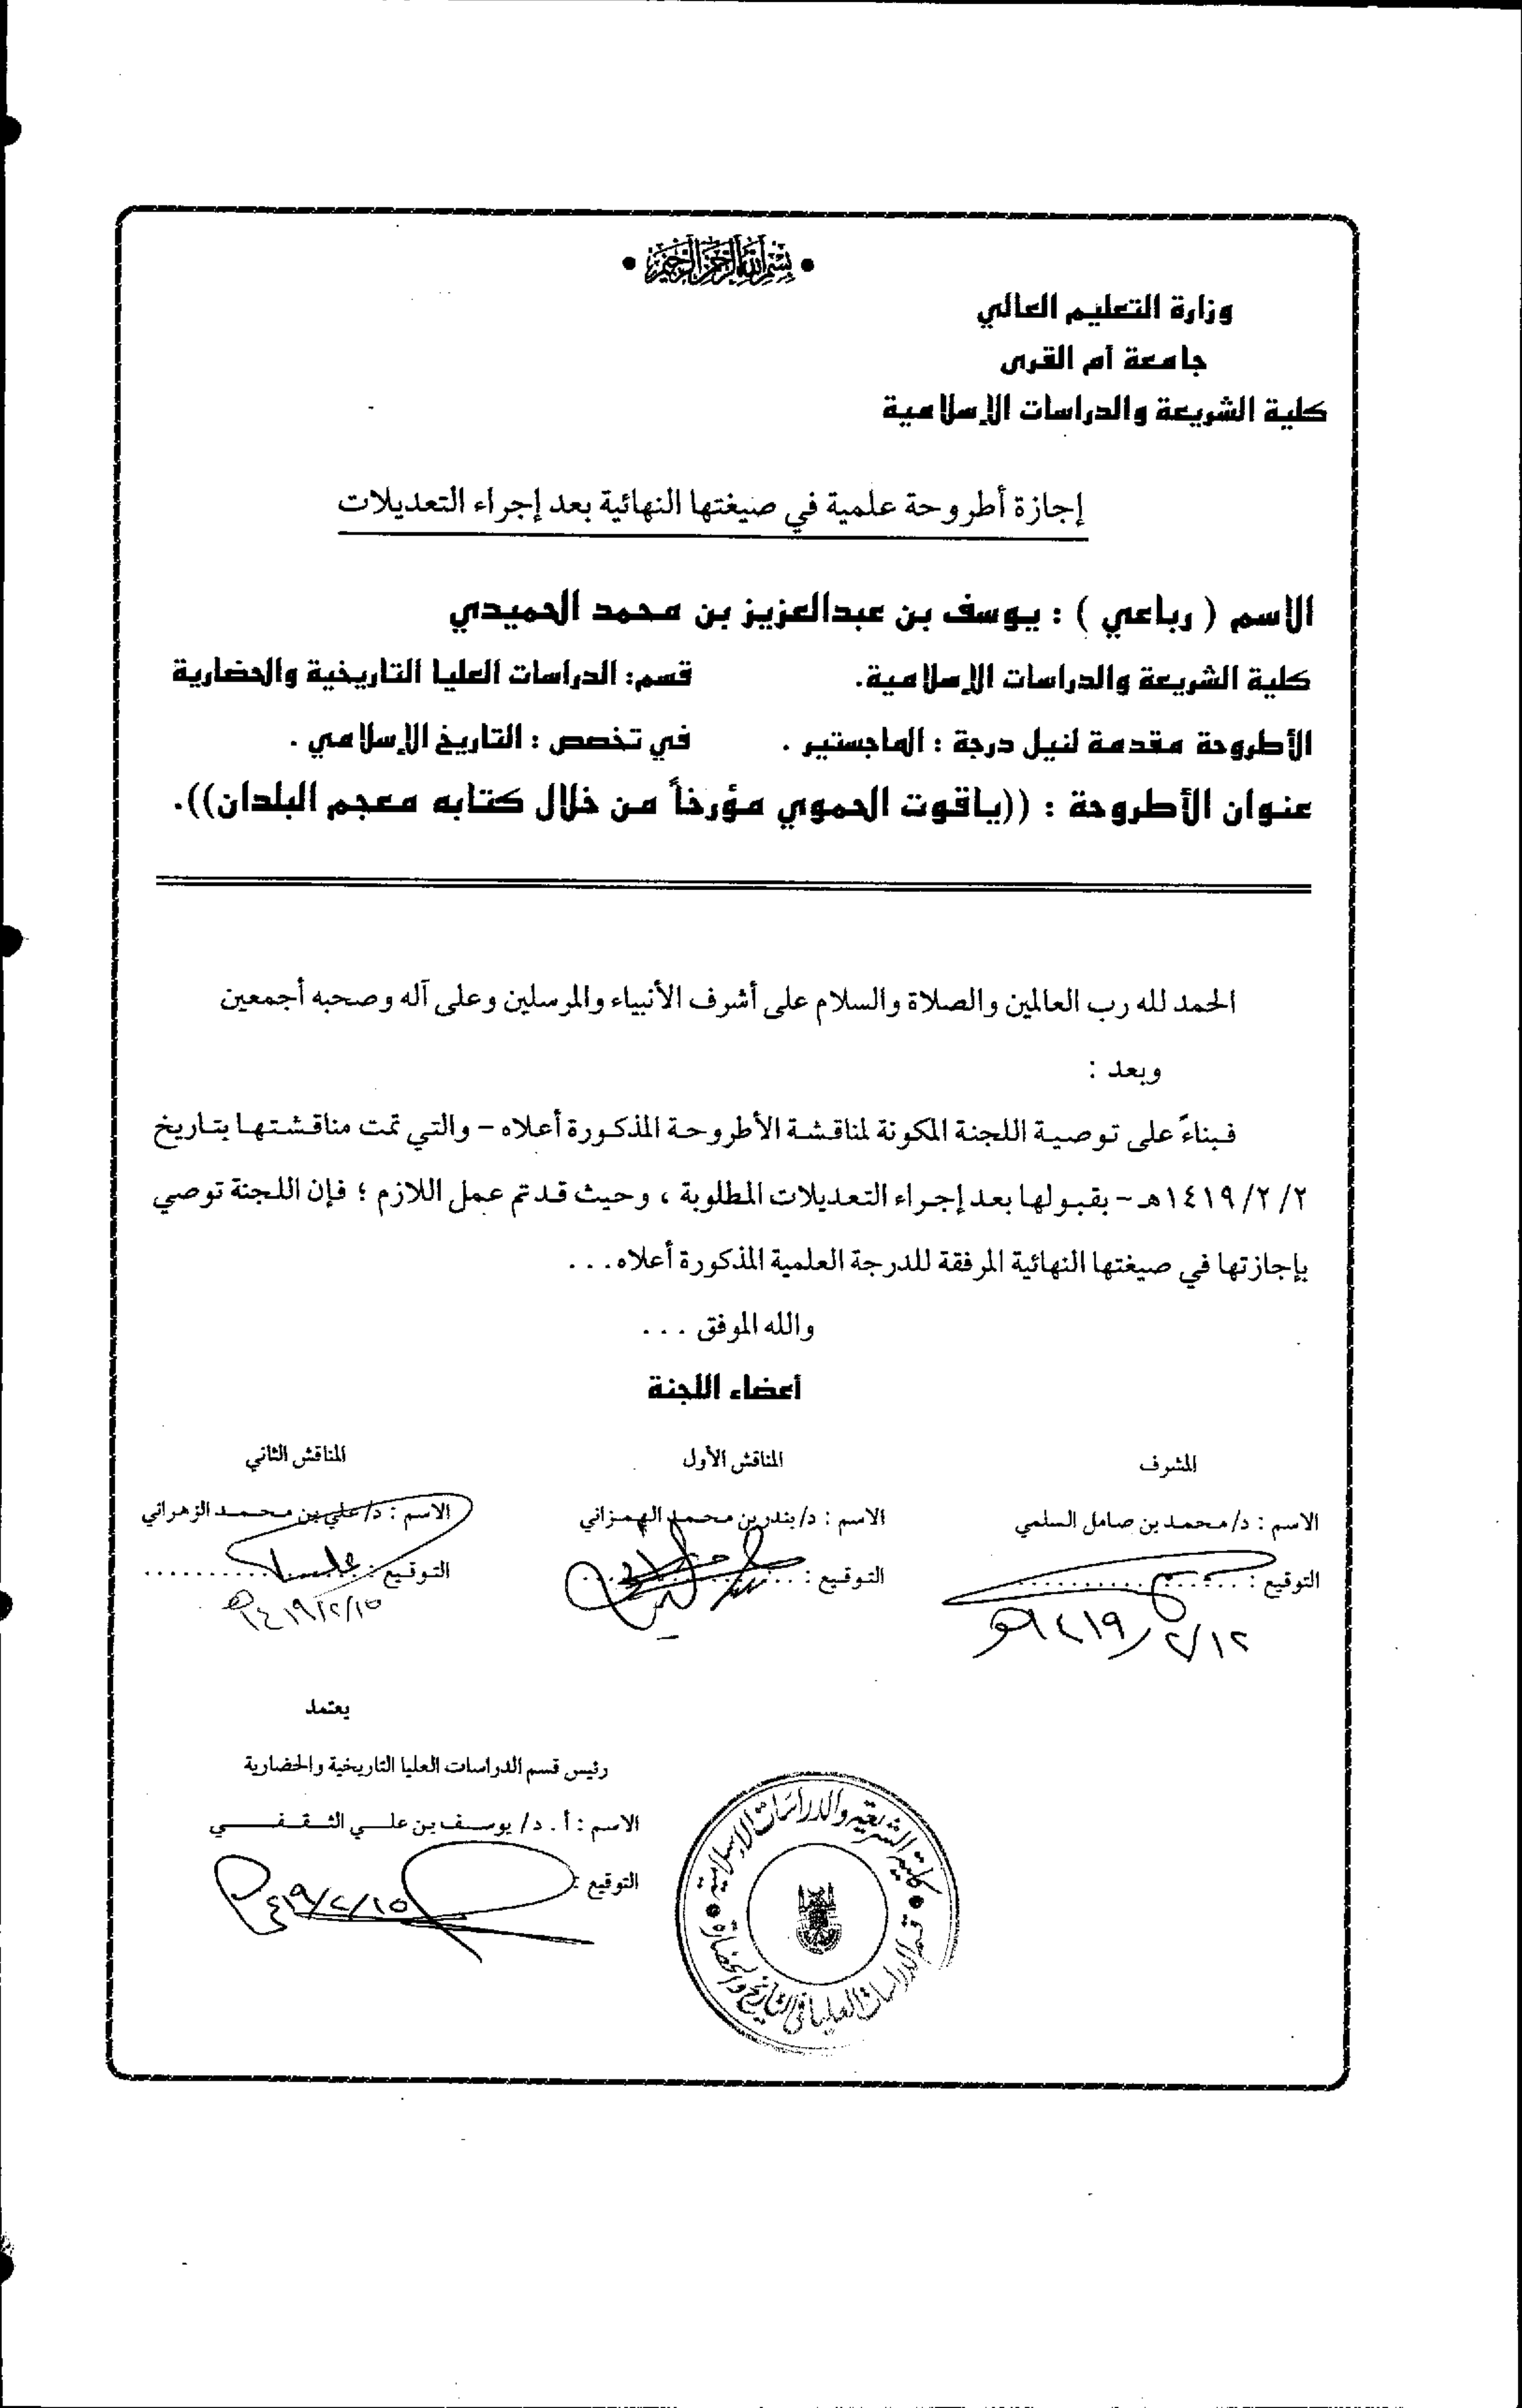 بسم الله الرحمن الرحيم
وزارة التعليم العالي
جامعة أم القرى
كلية الشريعة والدراسات الإسلامية
إجازة أطروحة علمية في صيغتها النهائية بعد إجراء التعديلات
الاسم ( رباعي ) : يوسف بن عبدالعزيز بن محمد الحميدي
كلية الشريعة والدراسات الإسلامية. قسم: الدراسات العليا التاريخية والحضارية
الأطروحة مقدمة لنيل درجة : الماجستير . في تخصص : التاريخ الإسلامي .
عنوان الأطروحة : ((ياقوت الحموي مؤرخاً من خلال كتابه معجم البلدان)).
الحمد لله رب العالمين والصلاة والسلام على أشرف الأنبياء والمرسلين وعلى آله وصحبه أجمعين
وبعد :
فبناءً على توصية اللجنة المكونة لمناقشة الأطروحة المذكورة أعلاه - والتي تمت مناقشتها بتاريخ
٢/ ٢/ ١٤١٩هـ - بقبولها بعد إجراء التعديلات المطلوبة ، وحيث قد تم عمل اللازم ؛ فإن اللجنة توصي
بإجازتها في صيغتها النهائية المرفقة للدرجة العلمية المذكورة أعلاه...
والله الموفق ...
أعضاء اللجنة
المشرف المناقش الأول المناقش الثاني
الاسم : د/ محمد بن صامل السلمي الاسم : د/ بندر بن محمد الهمزاني الاسم : د/ علي بن محمد الزهراني
التوقيع : التوقيع : التوقيع :
١٢/٢/١٤١٩هـ ١٥/٢/١٤١٩هـ
يعتمد
رئيس قسم الدراسات العليا التاريخية والحضارية
الاسم : أ . د/ يوسف بن علي الثقفي
التوقيع :
١٥/٢/١٤١٩هـ
كلية الشريعة والدراسات الإسلامية
قسم الدراسات العليا في التاريخ والحضارة